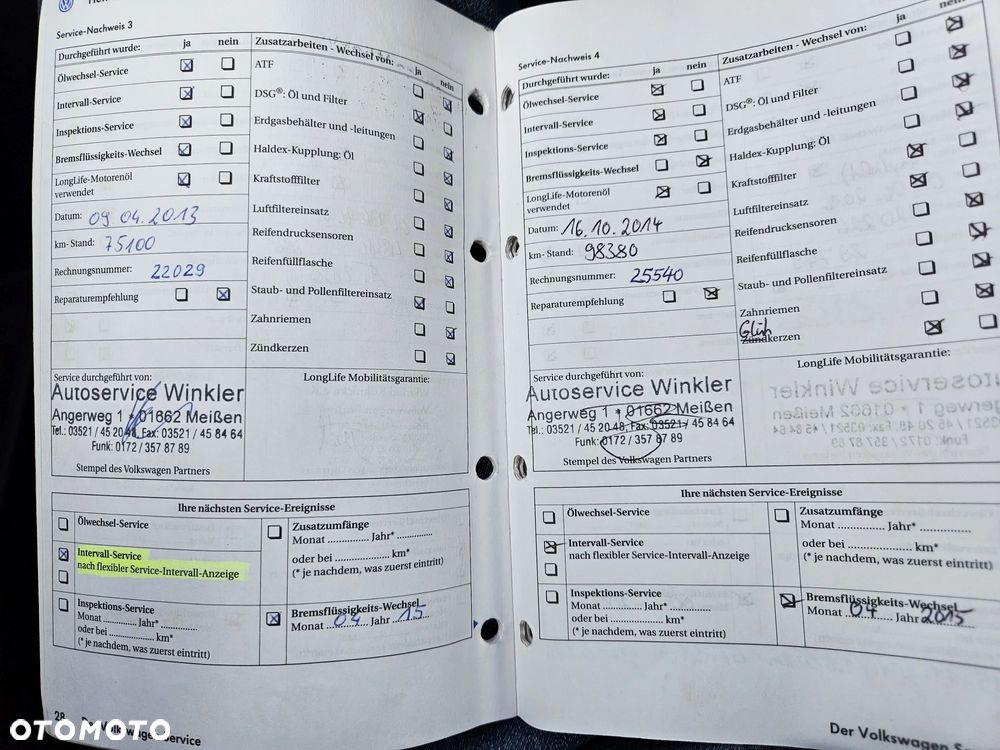 Service-Nachweis 3
Durchgeführt wurde: ja nein
Ölwechsel-Service
Intervall-Service
Inspektions-Service
Bremsflüssigkeits-Wechsel
LongLife-Motorenöl
verwendet
Datum: 09 04.2013
km- Stand: 75100
Rechnungsnummer: 22029
Reparaturempfehlung
Zusatzarbeiten - Wechsel von: ja nein
ATF
DSG®: Öl und Filter
Erdgasbehälter und -leitungen
Haldex-Kupplung: Öl
Kraftstofffilter
Luftfiltereinsatz
Reifendrucksensoren
Reifenfüllflasche
Staub- und Pollenfiltereinsatz
Zahnriemen
Zündkerzen
Service durchgeführt von:
Autoservice Winkler
Angerweg 1 * 01662 Meißen
Tel.: 03521 / 45 20 48, Fax: 03521 / 45 84 64
Funk: 0172 / 357 87 89
Stempel des Volkswagen Partners
LongLife Mobilitätsgarantie:
Ihre nächsten Service-Ereignisse
Ölwechsel-Service
Intervall-Service
nach flexibler Service-Intervall-Anzeige
Inspektions-Service
Monat .............. Jahr* ..............
oder bei ...................... km*
(* je nachdem, was zuerst eintritt)
Zusatzumfänge
Monat .............. Jahr* ..............
oder bei ...................... km*
(* je nachdem, was zuerst eintritt)
Bremsflüssigkeits-Wechsel
Monat 04 Jahr 15
28 Der Volkswagen Service
Service-Nachweis 4
Durchgeführt wurde: ja nein
Ölwechsel-Service
Intervall-Service
Inspektions-Service
Bremsflüssigkeits-Wechsel
LongLife-Motorenöl
verwendet
Datum: 16.10.2014
km- Stand: 98380
Rechnungsnummer: 25540
Reparaturempfehlung
Zusatzarbeiten - Wechsel von: ja nein
ATF
DSG®: Öl und Filter
Erdgasbehälter und -leitungen
Haldex-Kupplung: Öl
Kraftstofffilter
Luftfiltereinsatz
Reifendrucksensoren
Reifenfüllflasche
Staub- und Pollenfiltereinsatz
Zahnriemen
Glüh
Zündkerzen
Service durchgeführt von:
Autoservice Winkler
Angerweg 1 * 01662 Meißen
Tel.: 03521 / 45 20 48, Fax: 03521 / 45 84 64
Funk: 0172 / 357 87 89
Stempel des Volkswagen Partners
LongLife Mobilitätsgarantie:
Ihre nächsten Service-Ereignisse
Ölwechsel-Service
Intervall-Service
nach flexibler Service-Intervall-Anzeige
Inspektions-Service
Monat .............. Jahr* ..............
oder bei ...................... km*
(* je nachdem, was zuerst eintritt)
Zusatzumfänge
Monat .............. Jahr* ..............
oder bei ...................... km*
(* je nachdem, was zuerst eintritt)
Bremsflüssigkeits-Wechsel
Monat 04 Jahr 2015
Der Volkswagen
OTOMOTO